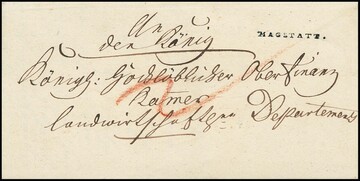 An
den König
MAGSTATT.
Königl: Hochlöblicher Ober Finanz
Kammer
landwirthschaftl. Departement